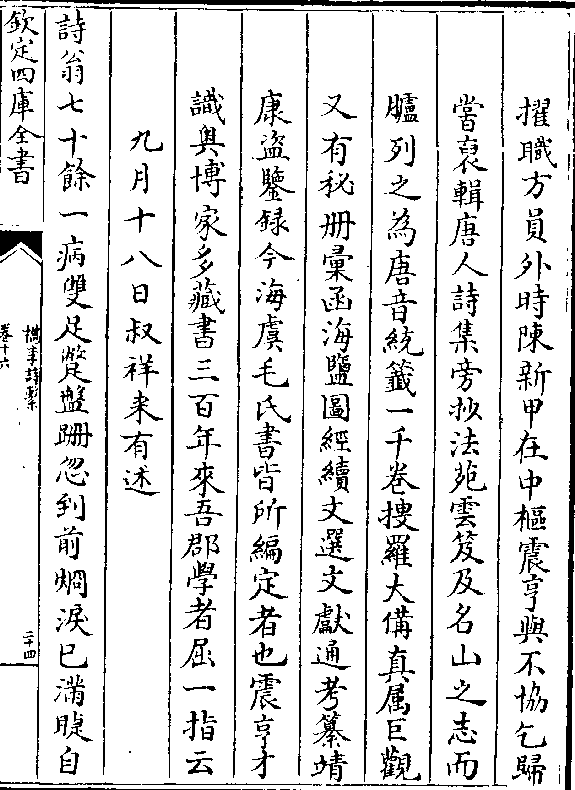 擢職方員外時陳新甲在中樞震亨與不協乞歸
嘗裒輯唐人詩集旁抄法苑雲笈及名山之志而
臚列之為唐音統籤一千卷捜羅大備真属巨觀
又有秘册彚函海鹽圖經續文選文獻通考纂靖
康盜鑒録今海虞毛氏書皆所編定者也震亨才
識奥博家多藏書三百年來吾郡學者屈一指云
九月十八日叔祥来有述
詩翁七十餘一病雙足躄盤跚忽到前烱淚已滿睫自
欽定四庫全書
檇李詩繫
卷十六
二十四